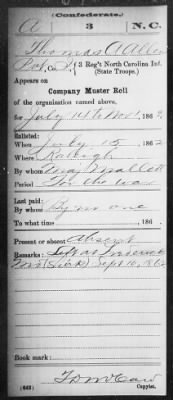 (Confederate.)
A 3 N.C.
Thomas A Allen
Pvt, Co. , 3 Reg't North Carolina Inf.
(State Troops.)
Appears on
Company Muster Roll
of the organization named above,
for July 14 to Nov 1, 1862.
Enlisted:
When July 15, 1862
Where Raleigh
By whom Maj Mallett
Period For the war
Last paid:
By whom By no one
To what time , 186 .
Present or absent Absent
Remarks: Left at Frederick
Md (Sick) Sept 10, 1862
Book mark:
(642)
Copyist.